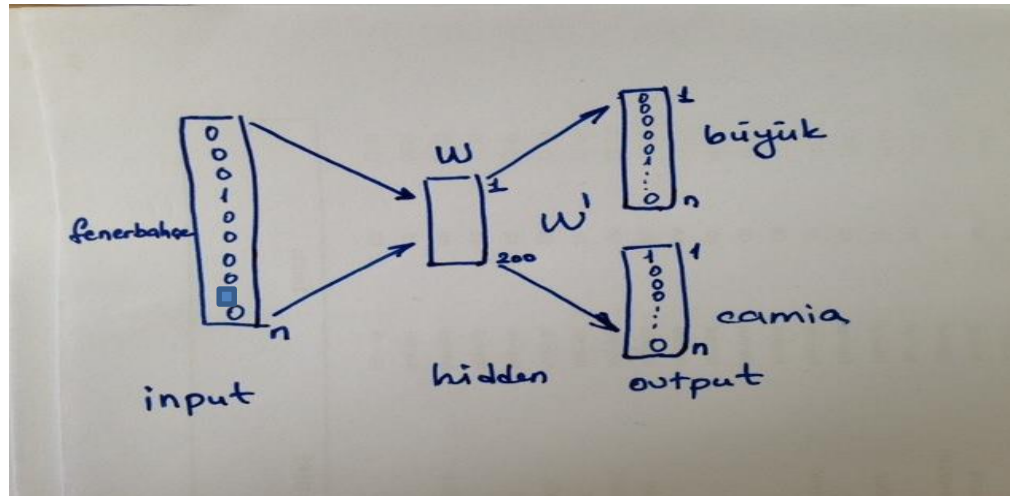 fenerbahçe
0
0
0
1
0
0
0
0
0
n
input
W
1
200
hidden
W'
0
0
0
0
0
1
...
0
1
n
büyük
1
0
0
0
...
0
1
n
camia
output